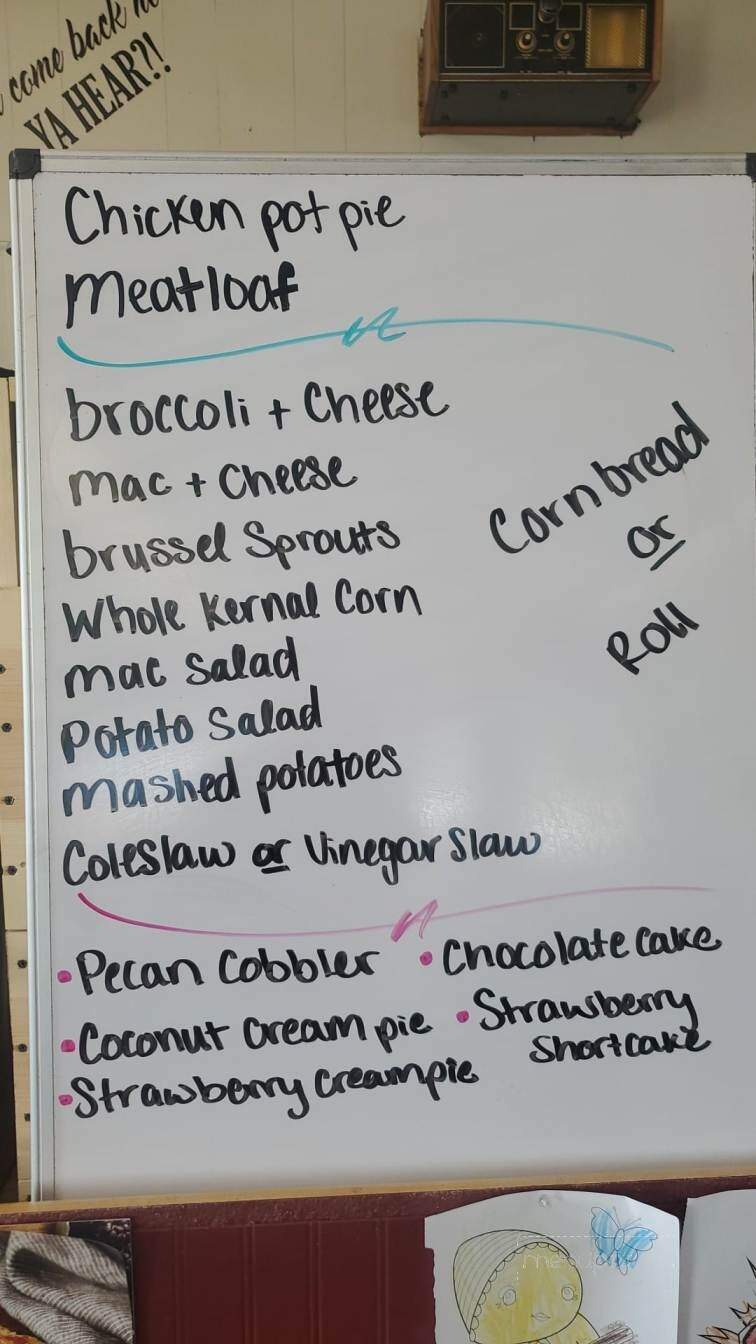 come back
YA HEAR?!
Chicken pot pie
Meatloaf
broccoli + Cheese
Mac + Cheese
brussel Sprouts
Whole Kernal Corn
Mac Salad
Potato Salad
Mashed potatoes
Coleslaw or Vinegar Slaw
Corn bread
or
Roll
• Pecan Cobbler
• Coconut Cream pie
• Strawberry Cream pie
• Chocolate Cake
• Strawberry
Shortcake